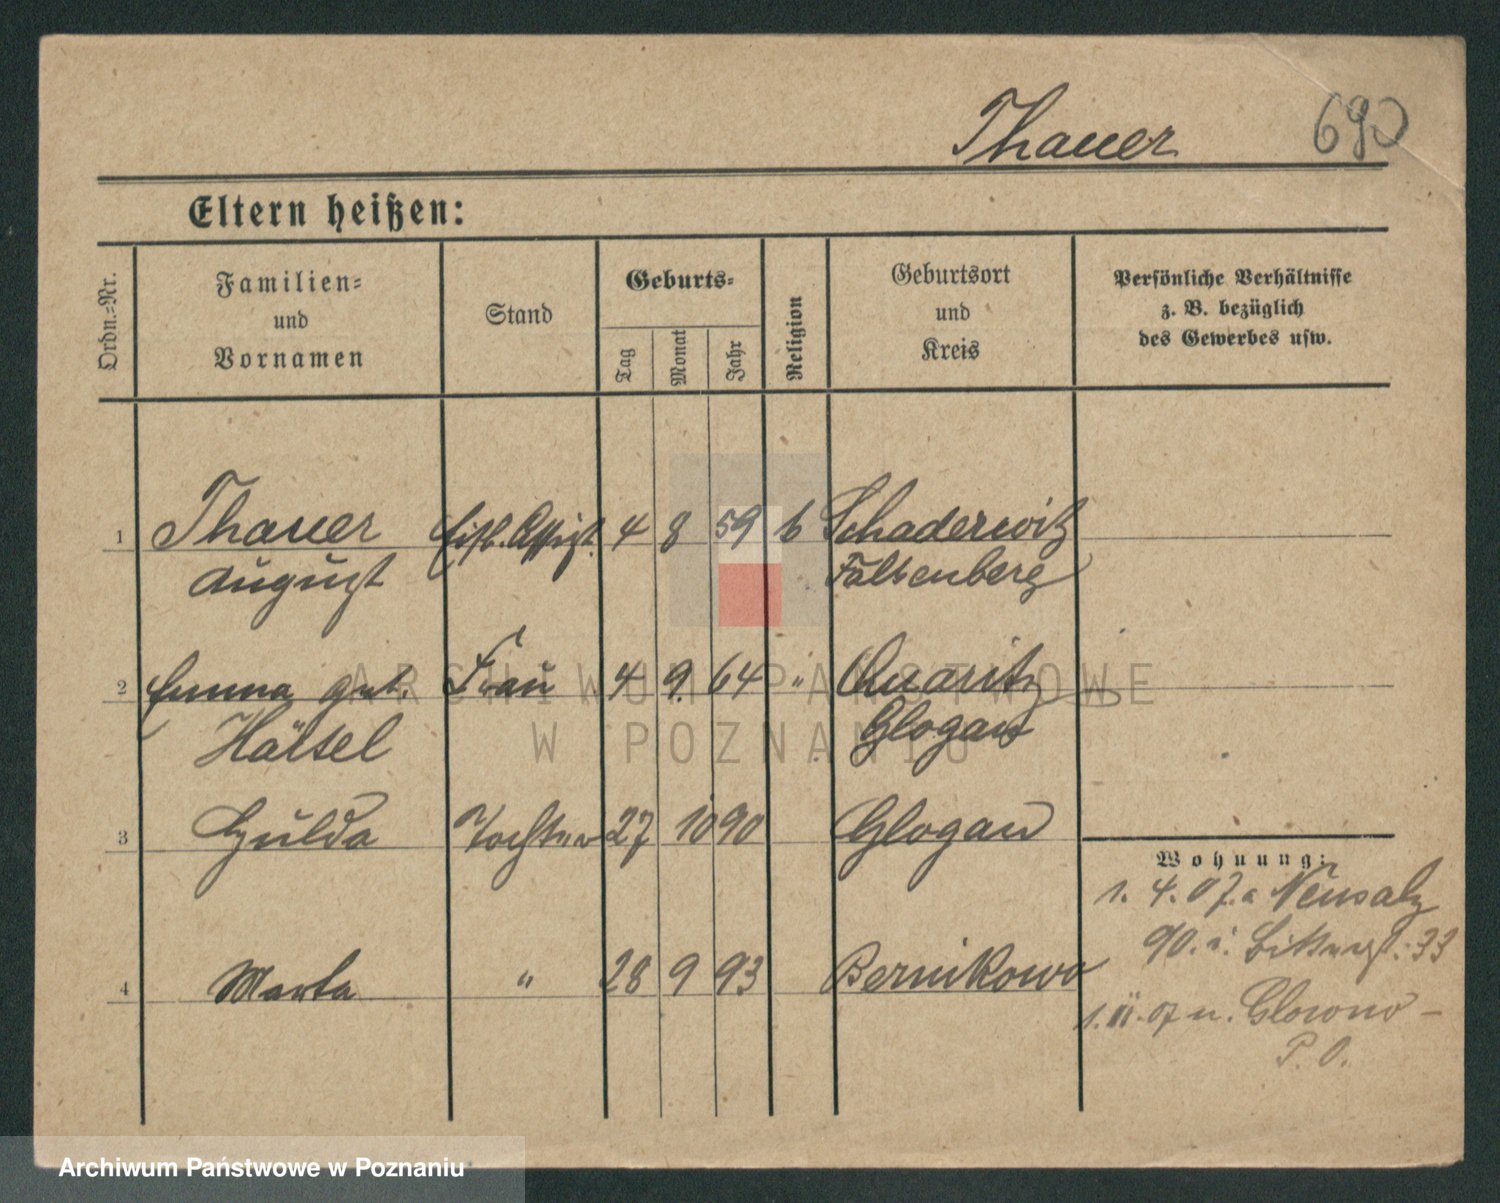 Thauer 690
Eltern heißen:
Ordn.-Nr.
Familien-
und
Vornamen
Stand
Geburts-
Tag
Monat
Jahr
Religion
Geburtsort
und
Kreis
Persönliche Verhältnisse
z. B. bezüglich
des Gewerbes usw.
1 Thauer Eisb. Assist. 4 8 59 k Schaderwitz
August Falkenberg
2 Emma geb. Frau 4 9. 64 " Quaritz
Glogau
3 Hulda Tochter 27 10 90 Glogau
4 Marta " 28 9 93 Bernikowo
Wohnung:
1. 4. 07. a Neusalz
90. i. 33
1. 07 n. Glowno -
P. O.
ARCHIWUM PAŃSTWOWE
W POZNANIU
Archiwum Państwowe w Poznaniu